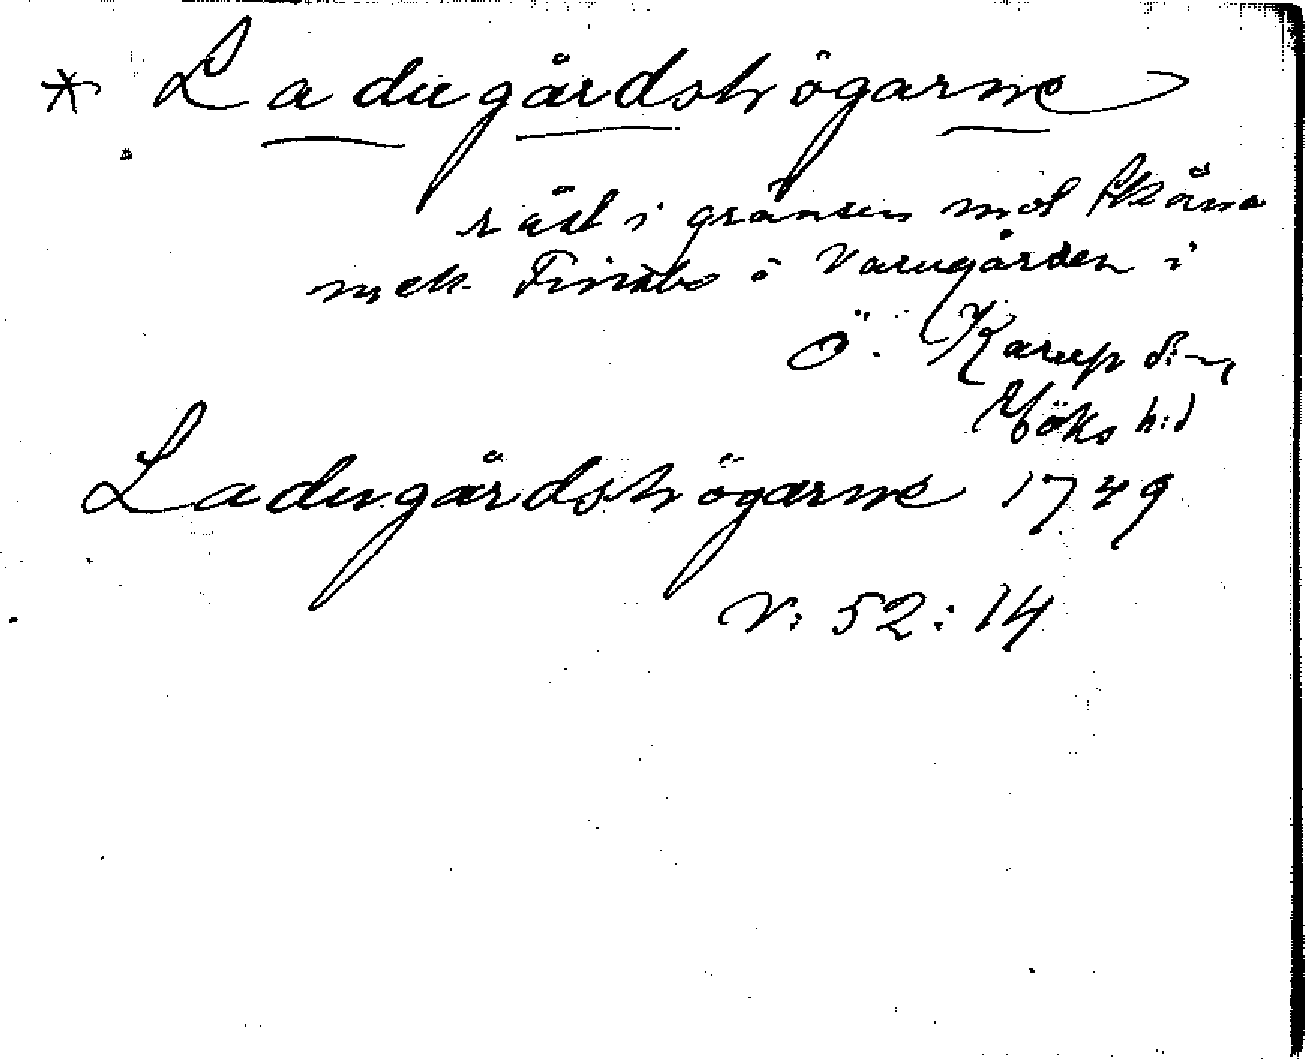 * Ladugårdshögarne
röst i gränsen mot Skåne
mell. Finabo o Varugården i
Ö. Karup s:n
Höks h:d
Ladugårdshögarne 1749
V: 52:14